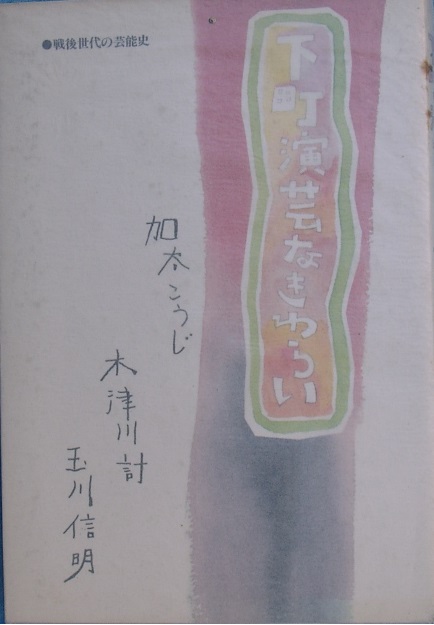 ●戦後世代の芸能史
下町演芸なきわらい
加太こうじ
木津川計
玉川信明